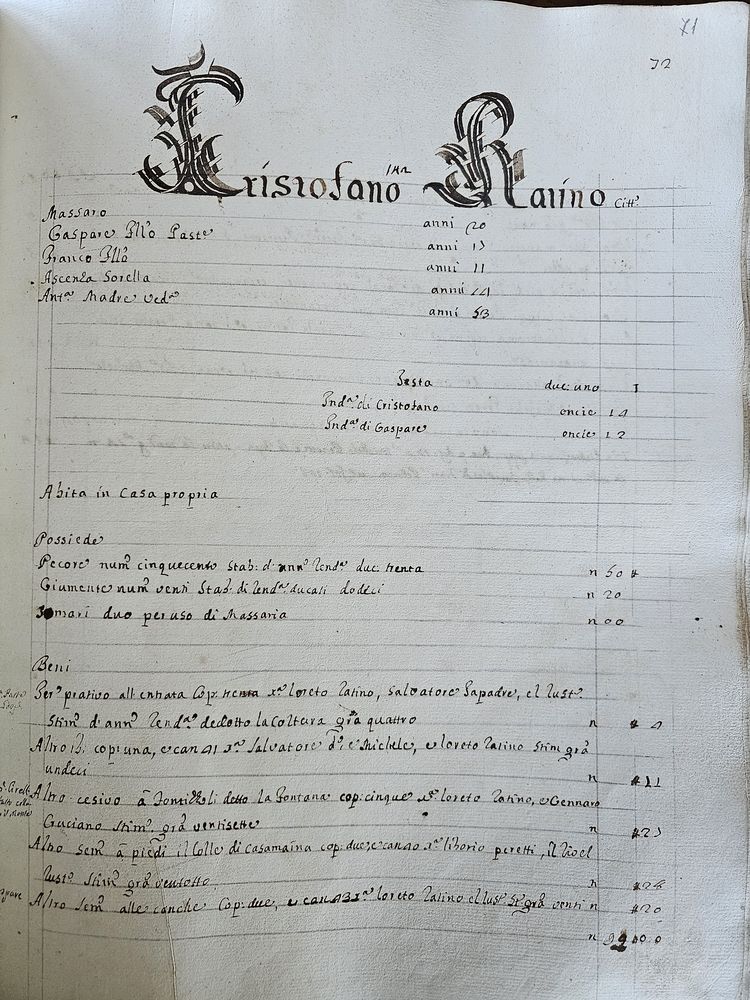 71
72
Cristofano Ratino Citt.º
Massaro anni 20
Gaspare Fllo Past.e anni 13
Franco Fllo anni 11
Ascenza Sorella anni 14
Ant.a Madre Ved.a anni 53
Testa duc: uno 1
Ind.a di Cristofano oncie 14
Ind.a di Gaspare oncie 12
Abita in Casa propria
Possiede
Pecore num.º cinquecento Stab: d'ann.a Rend.a duc: trenta n 50
Giumente num.º venti Stab: di Rend.a ducati dodeci n 20
Somari duo per uso di Massaria n 00
Beni
Ter.º prativo all'entrata Cop: trenta loreto Ratino, Salvatore Papadre, el Iust.
Stim.º d'ann.a Rend.a dedotto la Coltura grã quattro n 4
Altro cop: una, e can 41 Salvatore e Michele, e loreto Ratino Stim grã
undeci n 11
Altro cesivo detto la Fontana cop: cinque loreto Ratino, e Gennaro
Graciano Stim.º grã ventisette n
Altro Sem.º à piedi il Colle di Casamaina cop: due, e can 40 liborio peretti, il
Iust.º Stim.º grã ventotto n
Altro Sem.º alle conche Cop: due, e can loreto Ratino el Iust. St. grã venti n 20
n